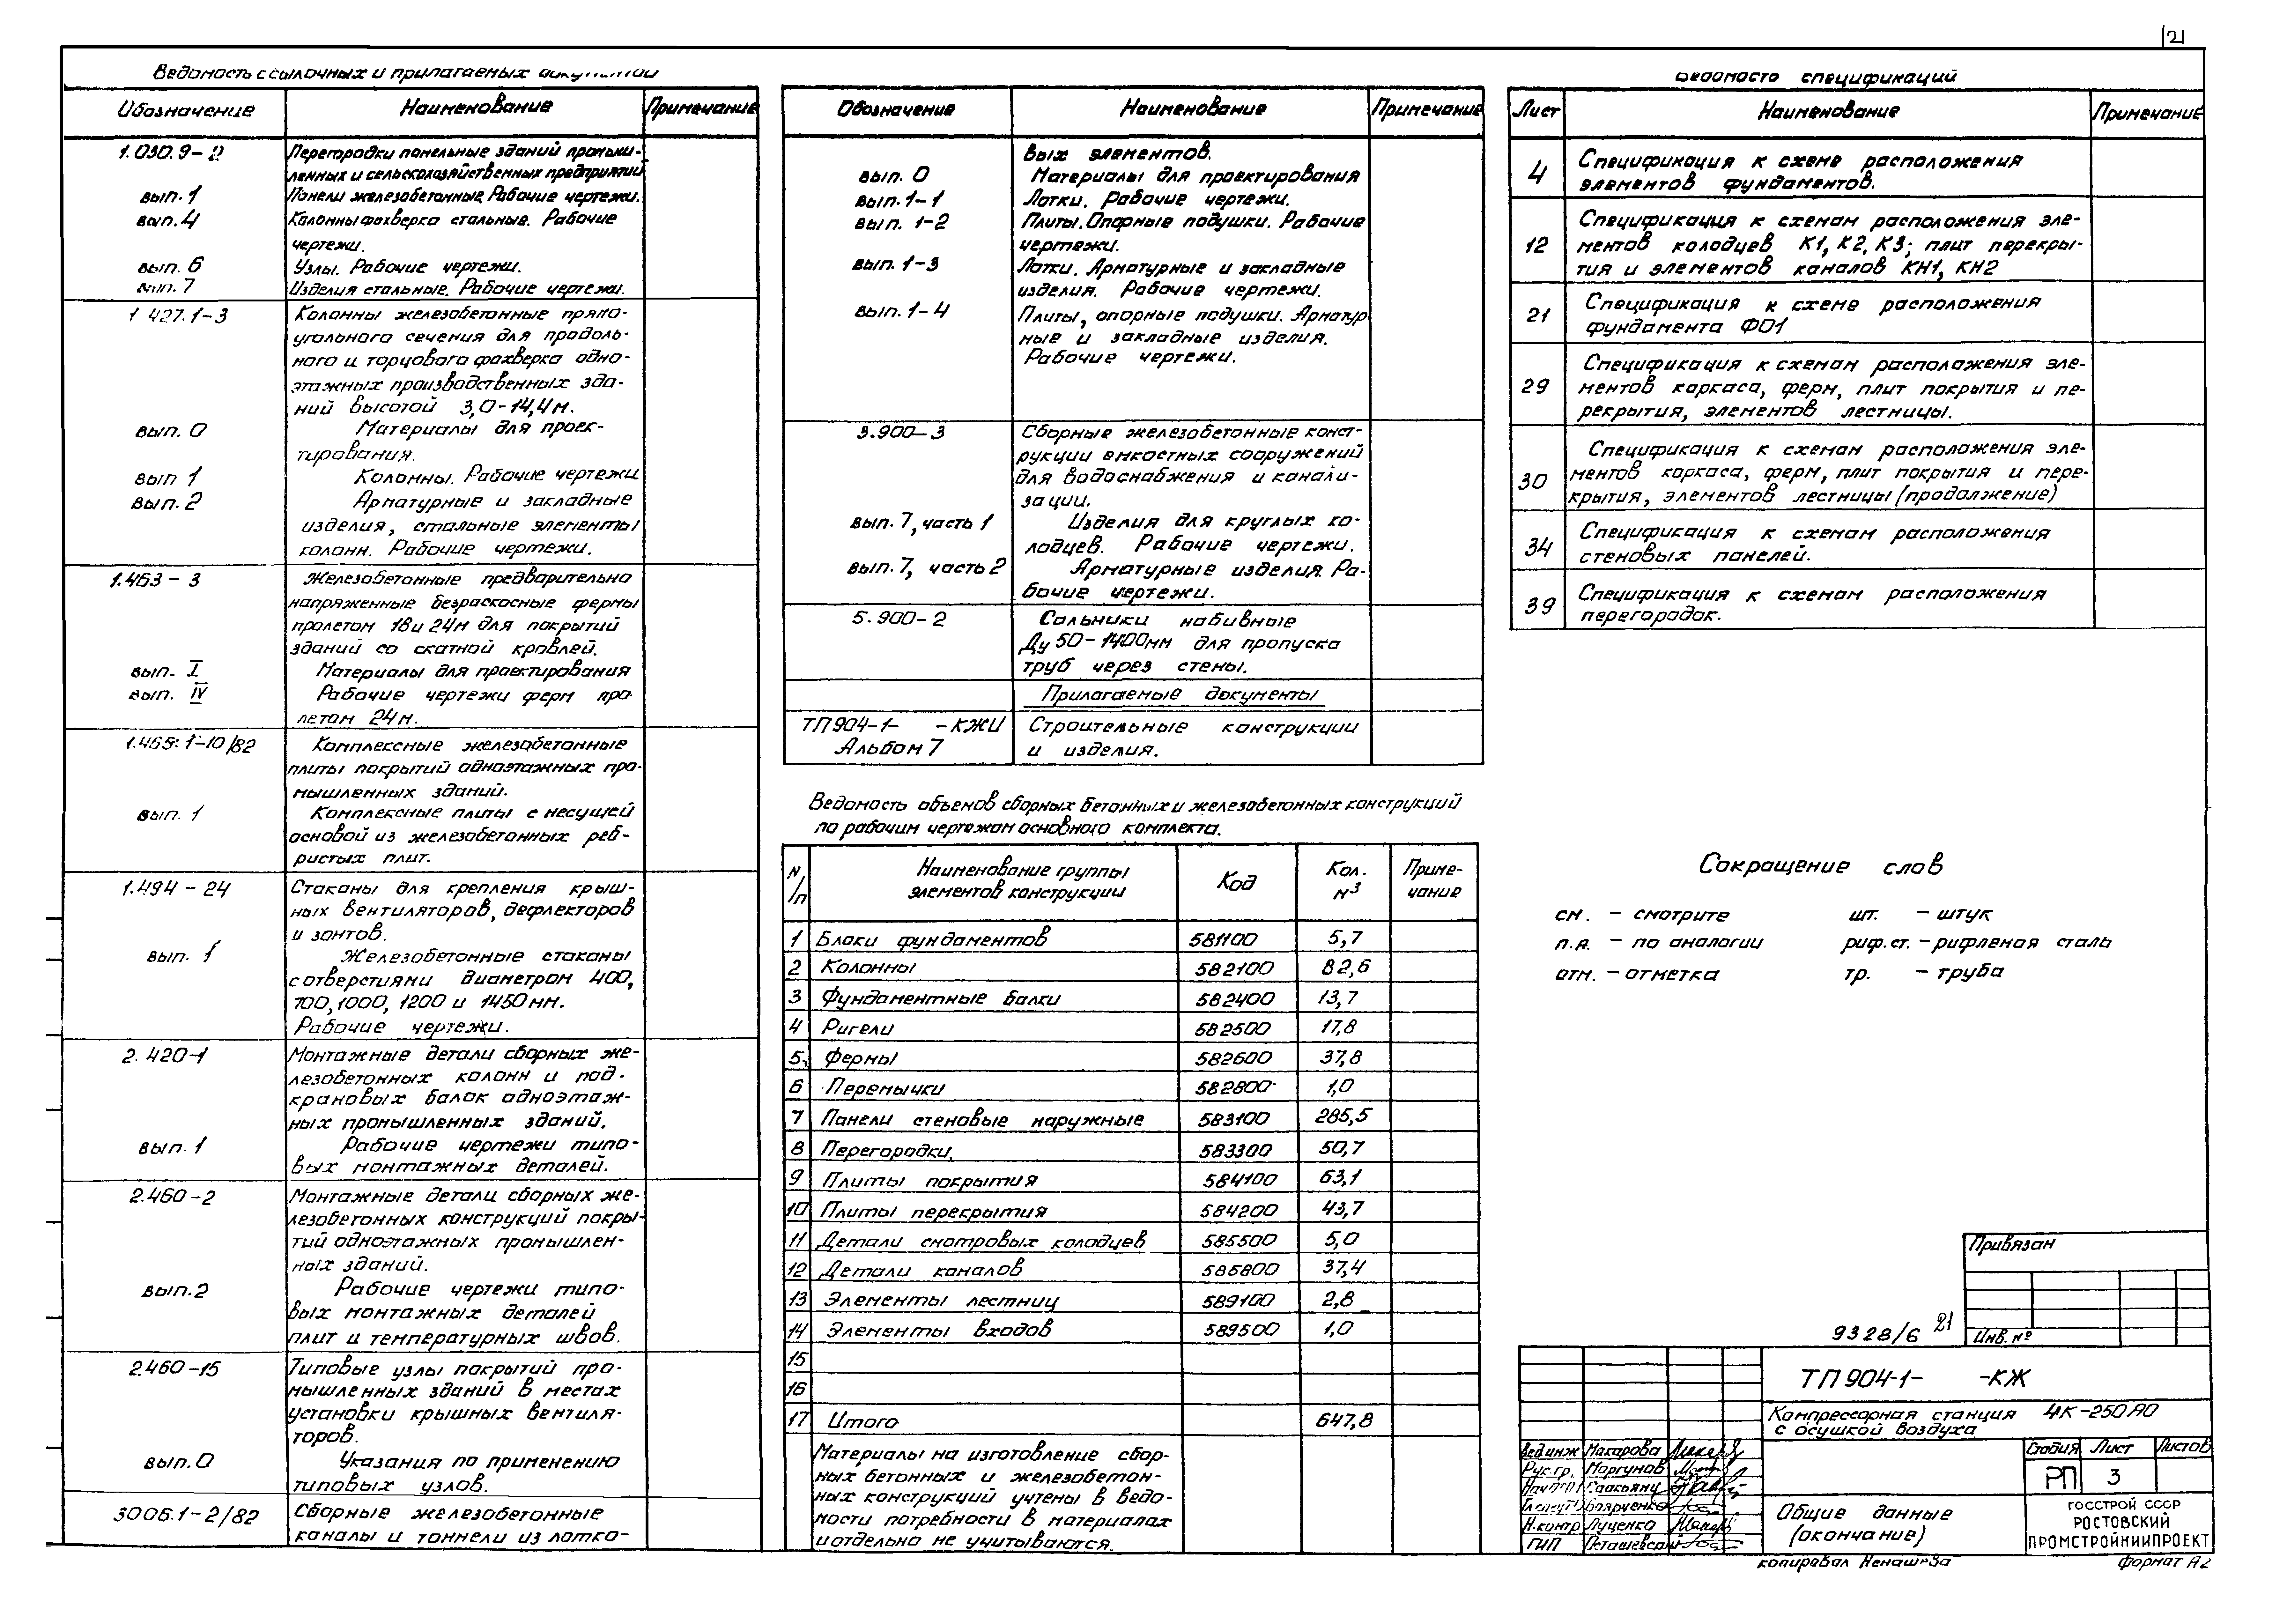 21
Ведомость ссылочных и прилагаемых документов
Обозначение Наименование Примечание
1.030.9-2 Перегородки панельные зданий промыш-
ленных и сельскохозяйственных предприятий
вып. 1 Панели железобетонные. Рабочие чертежи.
вып. 4 Колонны фахверка стальные. Рабочие
чертежи.
вып. 6 Узлы. Рабочие чертежи.
вып. 7 Изделия стальные. Рабочие чертежи.
1.427.1-3 Колонны железобетонные прямо-
угольного сечения для продоль-
ного и торцового фахверка одно-
этажных производственных зда-
ний высотой 3,0-14,4м.
вып. 0 Материалы для проек-
тирования.
вып 1 Колонны. Рабочие чертежи
вып. 2 Арматурные и закладные
изделия, стальные элементы
колонн. Рабочие чертежи.
1.463-3 Железобетонные предварительно
напряженные безраскосные фермы
пролетом 18 и 24м для покрытий
зданий со скатной кровлей.
вып. I Материалы для проектирования
вып. IV Рабочие чертежи ферм про-
летом 24м.
1.465.1-10/82 Комплексные железобетонные
плиты покрытий одноэтажных про-
мышленных зданий.
вып. 1 Комплексные плиты с несущей
основой из железобетонных реб-
ристых плит.
1.494-24 Стаканы для крепления крыш-
ных вентиляторов, дефлекторов
и зонтов.
вып. 1 Железобетонные стаканы
с отверстиями диаметром 400,
700, 1000, 1200 и 1450мм.
Рабочие чертежи.
2.420-1 Монтажные детали сборных же-
лезобетонных колонн и под-
крановых балок одноэтаж-
ных промышленных зданий.
вып. 1 Рабочие чертежи типо-
вых монтажных деталей.
2.460-2 Монтажные детали сборных же-
лезобетонных конструкций покры-
тий одноэтажных промышлен-
ных зданий.
вып. 2 Рабочие чертежи типо-
вых монтажных деталей
плит и температурных швов.
2.460-15 Типовые узлы покрытий про-
мышленных зданий в местах
установки крышных вентиля-
торов.
вып. 0 Указания по применению
типовых узлов.
3006.1-2/82 Сборные железобетонные
каналы и тоннели из лотко-
Обозначение Наименование Примечание
вых элементов.
вып. 0 Материалы для проектирования
вып. 1-1 Лотки. Рабочие чертежи.
вып. 1-2 Плиты. Опорные подушки. Рабочие
чертежи.
вып. 1-3 Лотки. Арматурные и закладные
изделия. Рабочие чертежи.
вып. 1-4 Плиты, опорные подушки. Арматур
ные и закладные изделия.
Рабочие чертежи.
3.900-3 Сборные железобетонные конст-
рукции емкостных сооружений
для водоснабжения и канали-
зации.
вып. 7, часть 1 Изделия для круглых ко-
лодцев. Рабочие чертежи.
вып. 7, часть 2 Арматурные изделия. Ра-
бочие чертежи.
5.900-2 Сальники набивные
Ду 50-1400мм для пропуска
труб через стены.
Прилагаемые документы
ТП904-1- -КЖИ Строительные конструкции
Альбом 7 и изделия.
Ведомость объемов сборных бетонных и железобетонных конструкций
по рабочим чертежам основного комплекта.
N/п Наименование группы элементов конструкции Код Кол. м³ Приме-чание
1 Блоки фундаментов 581100 5,7
2 Колонны 582100 82,6
3 Фундаментные балки 582400 13,7
4 Ригели 582500 17,8
5 Фермы 582600 37,8
6 Перемычки 582800 1,0
7 Панели стеновые наружные 583100 285,5
8 Перегородки. 583300 50,7
9 Плиты покрытия 584100 63,1
10 Плиты перекрытия 584200 43,7
11 Детали смотровых колодцев 585500 5,0
12 Детали каналов 585800 37,4
13 Элементы лестниц 589100 2,8
14 Элементы входов 589500 1,0
15
16
17 Итого 647,8
Материалы на изготовление сбор-
ных бетонных и железобетон-
ных конструкций учтены в ведо-
мости потребности в материалах
и отдельно не учитываются.
Ведомость спецификаций
Лист Наименование Примечание
4 Спецификация к схеме расположения
элементов фундаментов.
12 Спецификация к схемам расположения эле-
ментов колодцев К1, К2, К3; плит перекры-
тия и элементов каналов КН1, КН2
21 Спецификация к схеме расположения
фундамента ФО1
29 Спецификация к схемам расположения эле-
ментов каркаса, ферм, плит покрытия и пе-
рекрытия, элементов лестницы.
30 Спецификация к схемам расположения эле-
ментов каркаса, ферм, плит покрытия и пере-
крытия, элементов лестницы (продолжение)
34 Спецификация к схемам расположения
стеновых панелей.
39 Спецификация к схемам расположения
перегородок.
Сокращение слов
см. - смотрите шт. - штук
п.а. - по аналогии риф.ст. - рифленая сталь
отм. - отметка тр. - труба
Привязан
Инв. №
9328/6 21
ТП 904-1- -КЖ
Компрессорная станция 4К-250АО
с осушкой воздуха
Стадия Лист Листов
РП 3
Вед.инж Макарова
Рук.гр. Моргунов
Н.контр Луценко
ГИП
Общие данные
(окончание)
ГОССТРОЙ СССР
РОСТОВСКИЙ
ПРОМСТРОЙНИИПРОЕКТ
копировал Ненашева формат А2